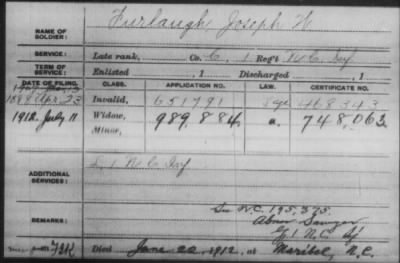 NAME OF SOLDIER: Furlaugh, Joseph H
SERVICE: Late rank, Co. C, 1 Reg't N.C. Inf
TERM OF SERVICE: Enlisted , 1 Discharged , 1
DATE OF FILING. CLASS. APPLICATION NO. LAW. CERTIFICATE NO.
Apr 23 Invalid, 651791 468343
1912 July 11 Widow, 989,884 a. 748,063
Minor,
ADDITIONAL SERVICES: L 1 N C Inf
REMARKS: See W.C. 195,325
Abner Sawyer
1 N.C. Inf
Died June 22, 1912, at Maribel, N.C.